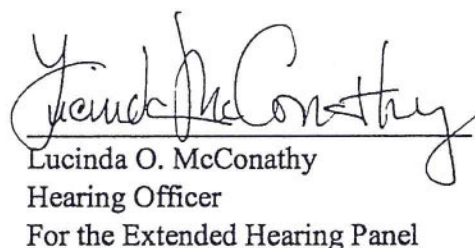 Lucinda McConathy
Lucinda O. McConathy
Hearing Officer
For the Extended Hearing Panel